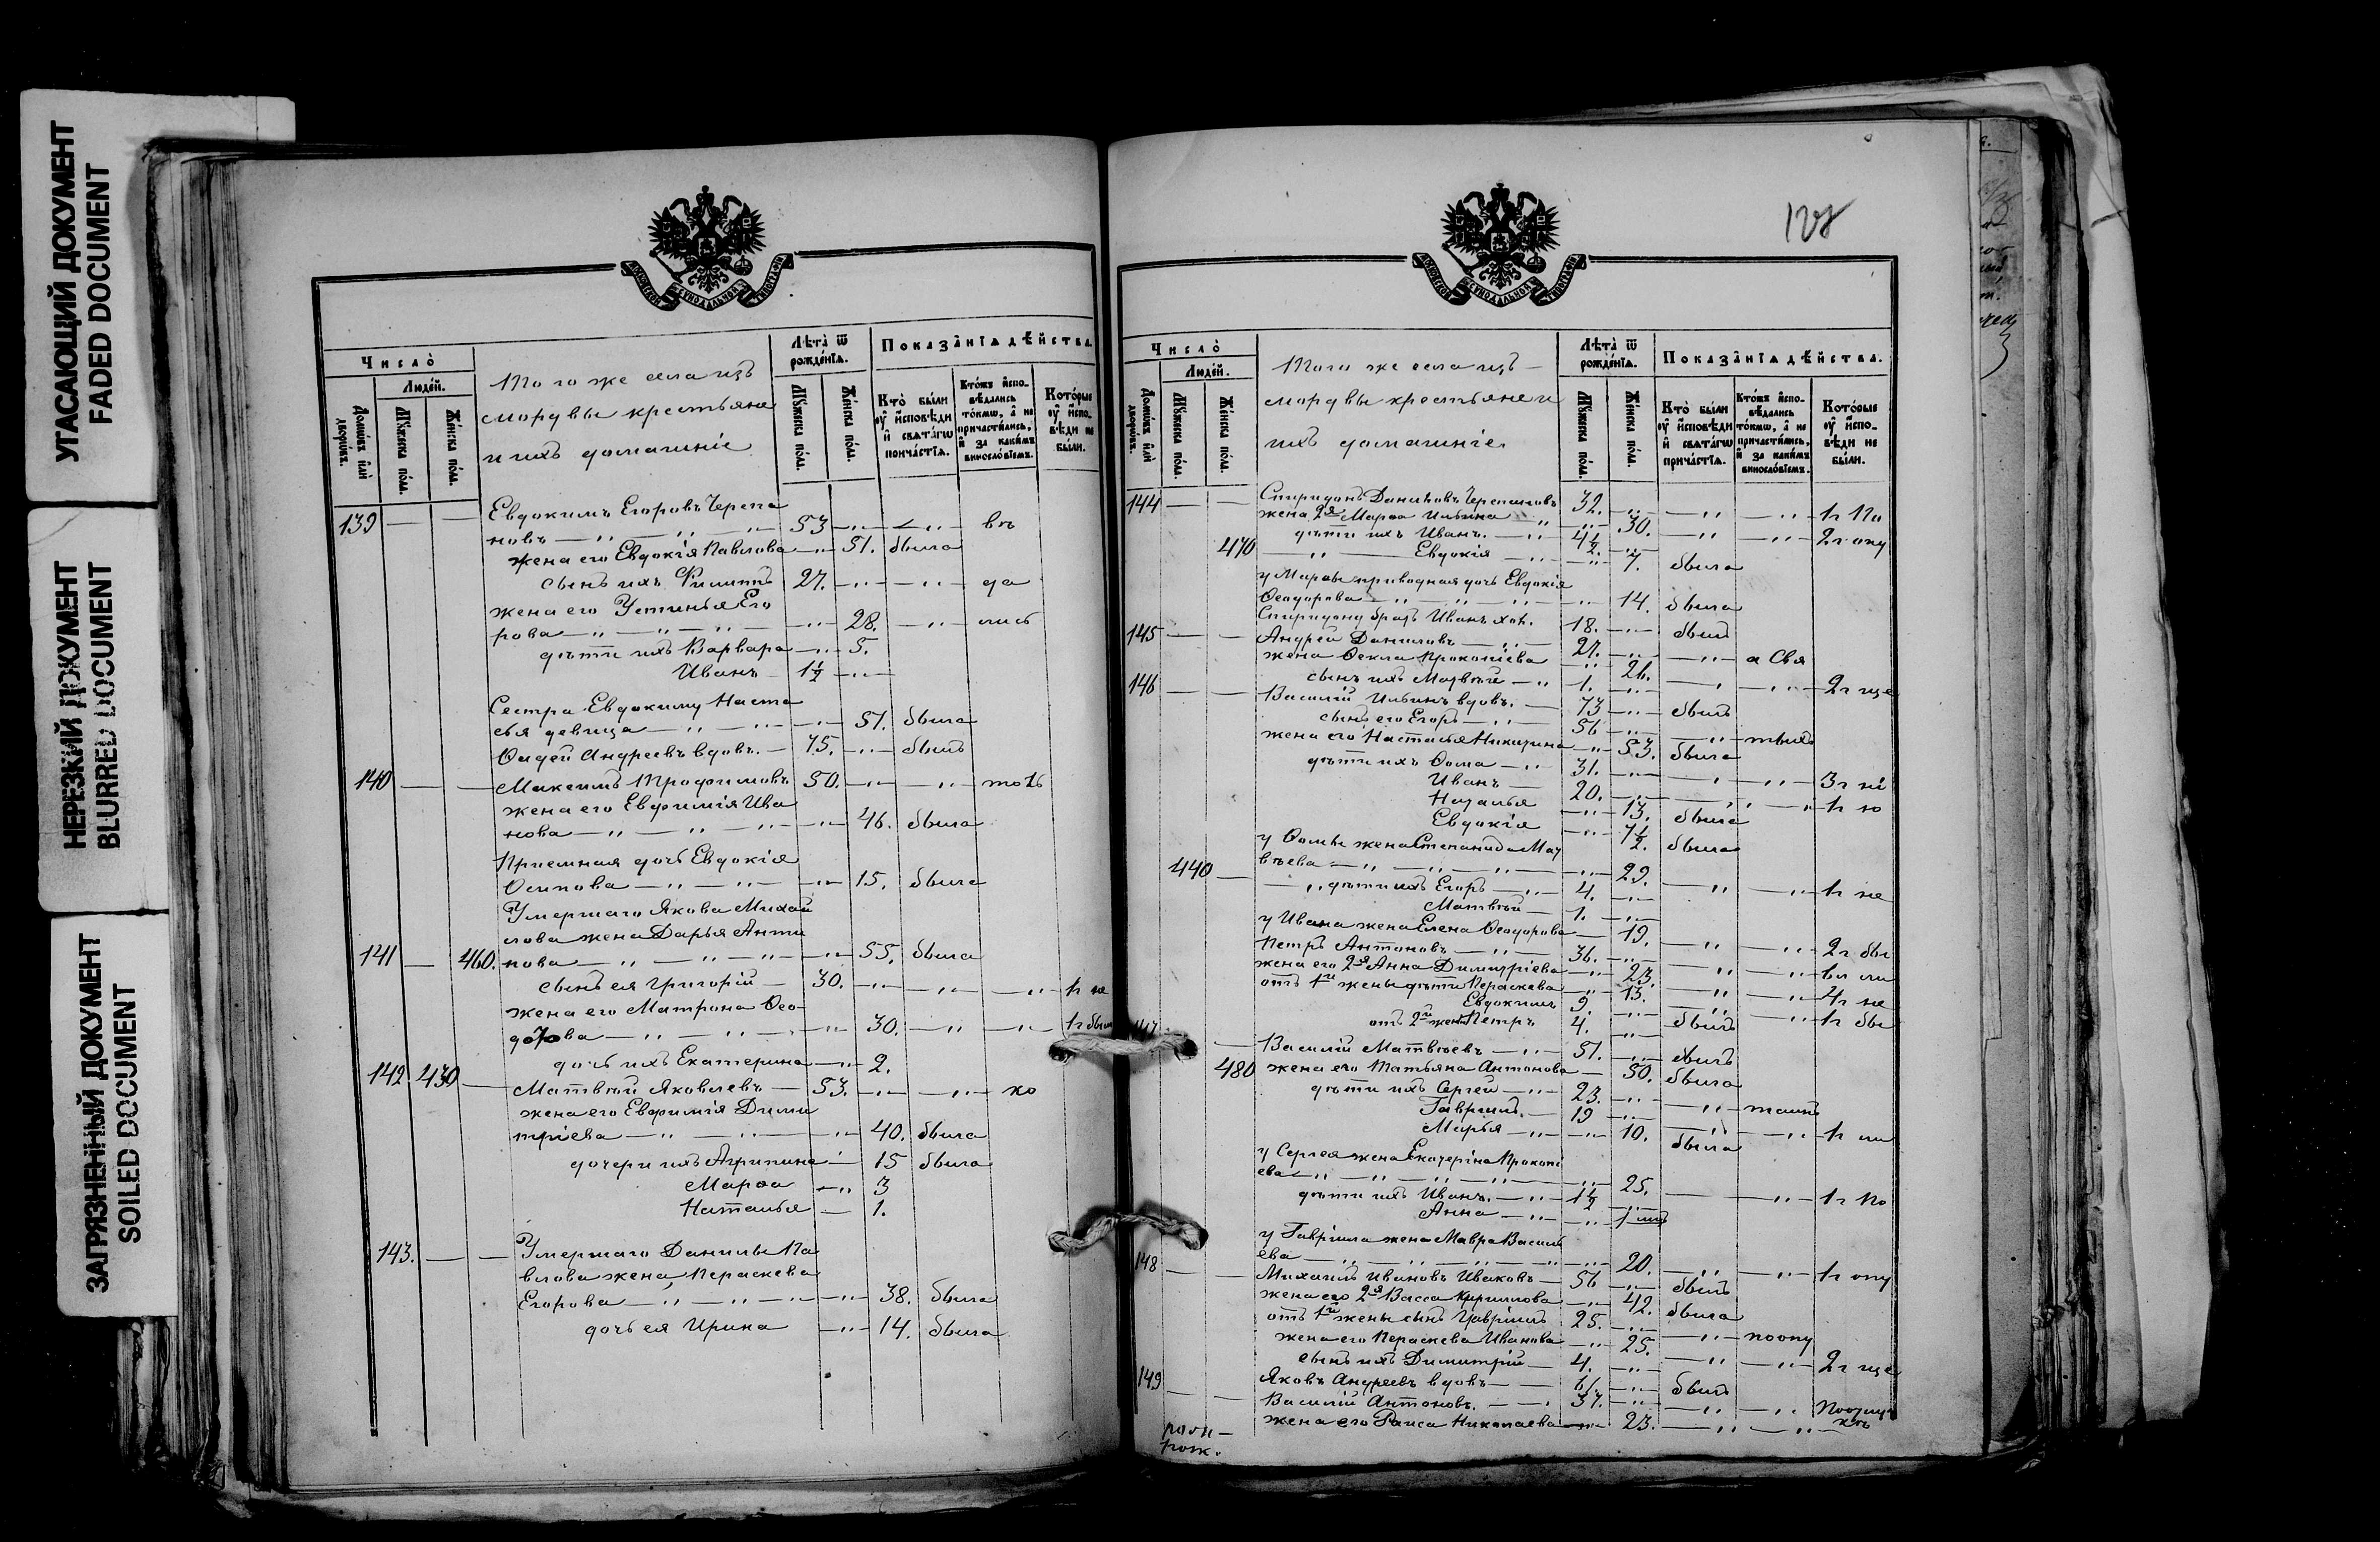 УГАСАЮЩИЙ ДОКУМЕНТ
FADED DOCUMENT
НЕРЕЗКИЙ ДОКУМЕНТ
BLURRED DOCUMENT
ЗАГРЯЗНЕННЫЙ ДОКУМЕНТ
SOILED DOCUMENT
МОСКОВСКОЙ СѴНОДАЛЬНОЙ ТИПОГРАФІИ
Число̀
Людей.
Домовъ или дворовъ.
Мꙋжеска пола.
Женска пола.
Того же села изъ
мордвы крестьяне
и ихъ домашніе
Лѣта ѿ рожденїѧ.
Мꙋжеска пола.
Женска пола.
Показанїѧ дѣйства.
Кто были ᲂу исповѣди и свѧтагѡ причастїѧ.
Ктожъ исповѣдались токмѡ, а не причастились, и за какимъ винословїемъ.
Которые ᲂу исповѣди не были.
139 — — Евдокимъ Егоровъ Черепа
новъ — 〃 — 〃 — 53 — 〃 — 〃 — въ
жена его Евдокія Павлова — 〃 — 51. была
сынъ ихъ Филиппъ 27. — 〃 — 〃 — да
жена его Устинья Его
рова — 〃 — 〃 — 〃 — 28. — 〃 — лись
дѣти ихъ Варвара — 〃 — 5.
Иванъ — 1½ — 〃 —
Сестра Евдокиму Наста
сья девица — 〃 — 〃 — 51. была
Фадей Андреевъ вдовъ. — 75. — 〃 — былъ
140 — — Максимъ Трофимовъ 50. — 〃 — 〃 —
жена его Евфимія Ива
нова — 〃 — 〃 — 〃 — 46. была
Приемная дочь Евдокія
Осипова — 〃 — 〃 — 15. была
Умершаго Якова Михай
лова жена Дарья Анти
141 — 460. пова — 〃 — 〃 — 〃 — 55. была
сынъ ея Григорій — 30. — 〃 — 〃 — 〃 — 1г не
жена его Матрона Ѳео
дорова — 〃 — 〃 — 〃 — 30. — 〃 — 〃 — 1г был
дочь ихъ Екатерина — 〃 — 2.
142. 430 — Матвѣй Яковлевъ — 53. — 〃 — 〃 — ко
жена его Евфимія Дими
тріева — 〃 — 〃 — 〃 — 40. была
дочери ихъ Агрипина — 15 была
Марѳа — 〃 3
Наталья — 1.
143. — — Умершаго Данилы Па
влова жена, Параскева
Егорова — 〃 — 〃 — 〃 — 38. была
дочь ея Ирина — 〃 — 14. была
128
МОСКОВСКОЙ СѴНОДАЛЬНОЙ ТИПОГРАФІИ
Число̀
Людей.
Домовъ или дворовъ.
Мꙋжеска пола.
Женска пола.
Того же села изъ —
мордвы крестьяне и
ихъ домашніе.
Лѣта ѿ рожденїѧ.
Мꙋжеска пола.
Женска пола.
Показанїѧ дѣйства.
Кто были ᲂу исповѣди и свѧтагѡ причастїѧ.
Ктожъ исповѣдались токмѡ, а не причастились, и за какимъ винословїемъ.
Которые ᲂу исповѣди не были.
144 — — Спиридонъ Даниловъ Черепановъ 32. — 〃 — 〃 — 〃 — 1г По
жена 2я Марѳа Ильина 〃 — 〃 — 30. — 〃 — 〃 — 2г опу
дѣти ихъ Иванъ. — 〃 — 4½ — 〃 —
470 — 〃 — Евдокія — 〃 — 〃 — 7. была
у Марѳы приводная дочь Евдокія
Ѳеодорова — 〃 — 〃 — 〃 — 14. была
Спиридону братъ Иванъ хол. 18. — 〃 — былъ
145 — — Андрей Даниловъ — 〃 — 27. — 〃 — 〃 — а Свя
жена Ѳекла Прокопіева — 〃 — 26. — 〃 — 〃 — 2г ще
сынъ ихъ Матвѣй — 〃 1. — 〃 —
146 — — Василій Ильинъ вдовъ. — 73 — 〃 — былъ
сынъ его Егоръ — 〃 — 56 — 〃 — 〃 — тыхъ
жена его Настасья Никитина — 〃 — 53. была
дѣти ихъ Ѳома — 〃 — 31. — 〃 — 〃 — 〃 — 3г ні
Иванъ — 20. — 〃 — 〃 — 〃 — 1г ю
Наталья — 〃 — 13. была
Евдокія — 〃 — 7½. была
у Ѳомы жена Степанида Мат
440 — вѣева — 〃 — 〃 — 〃 — 29. — 〃 — 〃 — 1г не
— 〃 дѣти ихъ Егоръ — 〃 — 4. — 〃 —
Матвѣй — 1. — 〃 —
у Ивана жена Елена Ѳеодорова — 19. — 〃 — 〃 — 2г бы
Петръ Антоновъ — 〃 — 36. — 〃 — 〃 — 〃
жена его 2я Анна Димитріева — 〃 — 23. — 〃 — 〃 — 4г не
отъ 1й жены дѣти Параскева — 〃 — 13. — 〃 — 〃 — 1г бы
Евдокимъ 9. — 〃 — былъ
отъ 2й жены Петръ 4. — 〃 —
147 — Василій Матвѣевъ — 〃 — 51. — 〃 — былъ
480 жена его Татьяна Антонова — 50. была
дѣти ихъ Сергей — 〃 — 23. — 〃 — 〃 — таинъ
Гавріилъ. — 19 — 〃 — 〃 — 〃 — 1г ли
Марья — 〃 — 〃 — 10. была
у Сергея жена Екатерина Прокопі
ева — 〃 — 〃 — 〃 — 〃 — 25. — 〃 — 1г По
дѣти ихъ Иванъ. — 〃 — 1½ — 〃 —
Анна — 〃 — 〃 —
у Гавріила жена Мавра Василь
ева — 〃 — 〃 — 〃 — 〃 — 20. — 〃 — 〃 — 1г опу
148 — — Михаилъ Ивановъ Иваковъ — 56 — 〃 — былъ
жена его 2я Васса Кириллова — 〃 — 42. была
отъ 1й жены сынъ Гавріилъ 25. — 〃 — 〃 — поопу
жена его Параскева Иванова — 〃 — 25. — 〃 — 〃 — 2г ще
сынъ ихъ Димитрій — 4. — 〃 —
149 — — Яковъ Андреевъ вдовъ — 61. — 〃 — былъ
Василій Антоновъ. — 37. — 〃 — 〃 — 〃
жена его Раиса Николаева — 〃 — 23. — 〃 — 〃 —